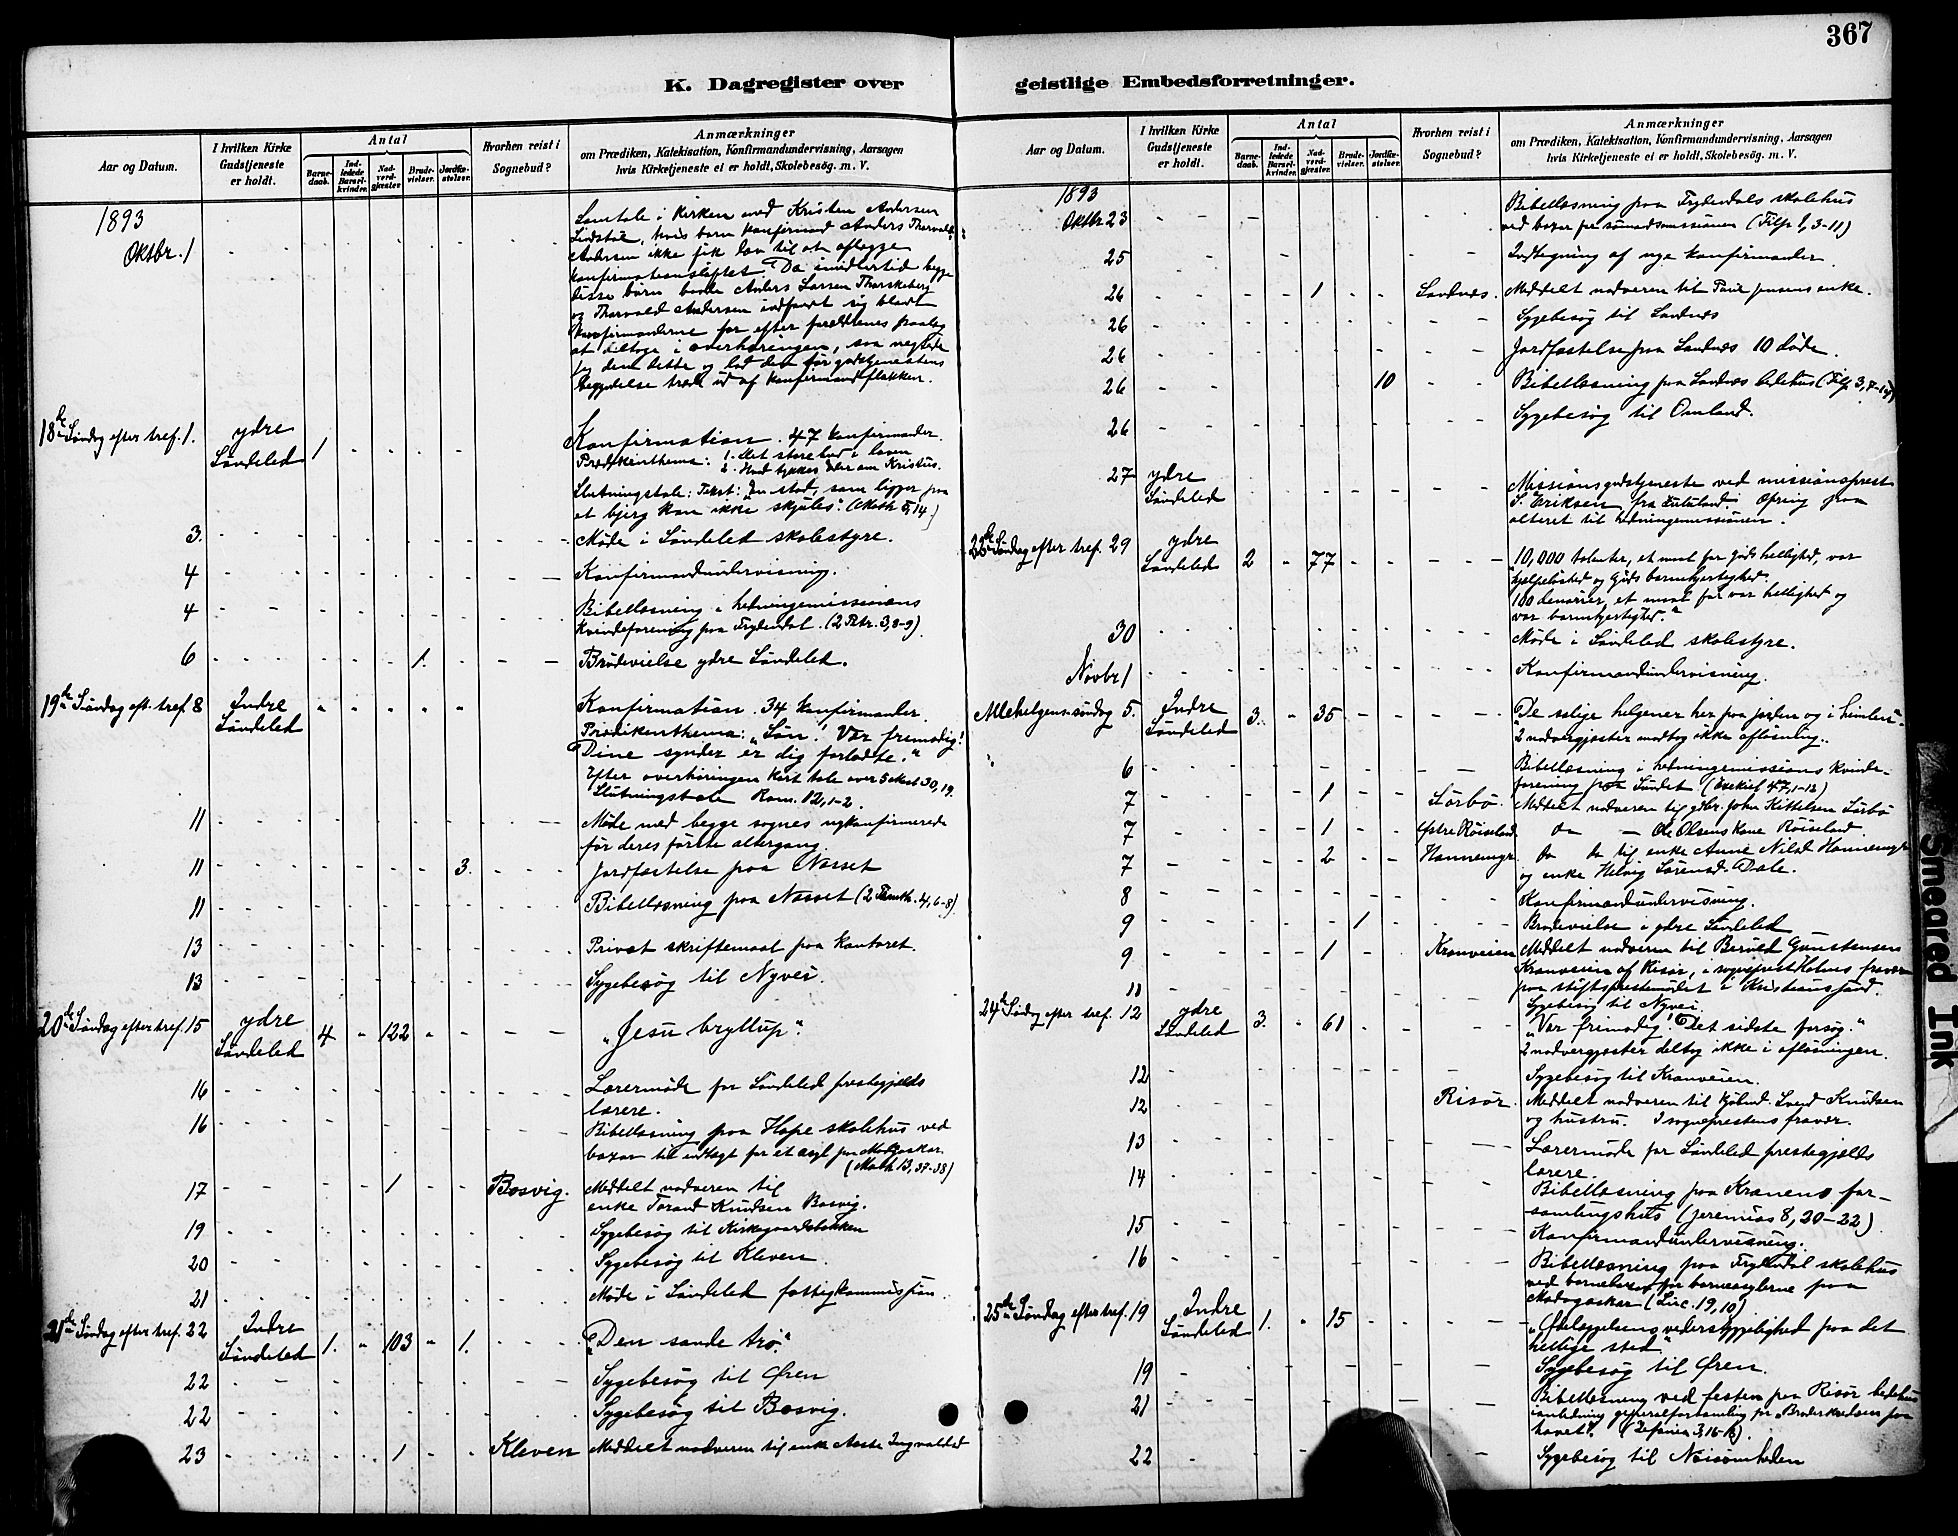 367
K. Dagregister over
geistlige Embedsforretninger.
Aar og Datum.
I hvilken Kirke
Gudstjeneste
er holdt.
Antal
Barne-
daab.
Ind-
ledede
Barsel-
kvinder.
Nad-
verd-
gjester.
Brude-
vielser.
Jordfæ-
stelser.
Hvorhen reist i
Sognebud?
Anmærkninger
om Prædiken, Katekisation, Konfirmandundervisning, Aarsagen
hvis Kirketjeneste ei er holdt, Skolebesøg. m. V.
1893
Oktbr. 1
Samtale i kirken med Kristen Andersen
hvis barn konfirmand Anders Thorvald
Andersen ikke fik lov til at aflægge
konfirmationsløftet. Da imidlertid begge
disse børn baade Anders Larsen
og Thorvald Andersen indfandt sig blandt
konfirmanderne for efter forældrenes paalæg
at deltage i overhøringen, saa negtede
jeg dem dette og lod dem før gudstjenestens
begyndelse træde ud af konfirmandflokken.
18de Søndag efter tref. 1. ydre Søndeled 1 - - - - Konfirmation. 47 konfirmander.
Prædikenthema: 1. Det store bud i loven
2. Hvad tykkes eder om Kristus.
Slutningstale: Tekst: En stad, som ligger paa
et bjerg kan ikke skjules". (Math 5, 14)
3. Møde i Søndeled skolestyre.
4 Konfirmandundervisning.
4 Bibellæsning i hedningemissionens
kvindeforening paa Frydendal. (2 Petr. 3, 8-9)
6 1. Brudevielse ydre Søndeled.
19de Søndag eft. tref. 8 Indre Søndeled Konfirmation. 34 konfirmander.
Prædikenthema: "Søn! Vær frimodig!
Dine synder er dig forladte."
Efter overhøringen kort tale over 5 Mos 30, 19.
Slutningstale Rom. 12, 1-2.
11 Møde med begge sognes nykonfirmerede
før deres første altergang.
11 3. Jordfæstelse paa Narset
11 Bibellæsning paa Narset (2 Timoth. 4, 6-8)
13 Privat skriftemaal paa kontoret.
13 Sygebesøg til Nyvei.
20de Søndag efter tref. 15 ydre Søndeled 4 - 122 - - - "Jesu bryllup".
16 Lærermøde for Søndeled prestegjelds
lærere.
16 Bibellæsning paa Hope skolehus ved
bazar til indtægt for et asyl paa Madagaskar
(Math 13, 37-38)
17 1 Bosvig. Meddelt nadveren til
enke Torand Knudsen Bosvig.
19 Sygebesøg til Kirkegaardsbakken
20 Sygebesøg til Kleven.
21 Møde i Søndeled fattigkommission.
21de Søndag efter tref. 22 Indre Søndeled 1. - 103 - 1. "Den sande tro."
22 Sygebesøg til Øren
22 Sygebesøg til Bosvig.
23 1 Kleven Meddelt nadveren til enke Aaste Ingvaldsd
Aar og Datum.
I hvilken Kirke
Gudstjeneste
er holdt.
Antal
Barne-
daab.
Ind-
ledede
Barsel-
kvinder.
Nad-
verd-
gjester.
Brude-
vielser.
Jordfæ-
stelser.
Hvorhen reist i
Sognebud?
Anmærkninger
om Prædiken, Katekisation, Konfirmandundervisning, Aarsagen
hvis Kirketjeneste ei er holdt, Skolebesøg. m. V.
1893
Oktbr 23 Bibellæsning paa Frydendals skolehus
ved bazar for sømandsmissionen (Filip 1, 3-11)
25 Indtegning af nye konfirmander.
26 1 Sandnæs. Meddelt nadveren til enke.
26 Sygebesøg til Sandnæs
26 Jordfæstelse paa Sandnæs 10 døde.
26 10 Bibellæsning paa Sandnæs bedehus
26 Sygebesøg til Omland.
27 ydre Søndeled Missionsgudstjeneste ved missionsprest
S. Eriksen fra Zululand. Ofring paa
alteret til hedningemissionen.
22de Søndag efter tref. 29 ydre Søndeled 2 - 77 "10,000 talenter, et maal for Guds hellighed, vor
hjælpeløshed og Guds barmhjertighed.
100 denarer, et maal for vor hellighed og
vor barmhjertighed."
30 Møde i Søndeled skolestyre.
Novbr 1 Konfirmandundervisning.
Allehelgenssøndag 5. Indre Søndeled 3. - 35 "De salige helgener her paa jorden og i himlen".
2 nadvergjæster modtog ikke afløsning.
6 Bibellæsning i hedningemissions kvinde-
forening paa Sundet (Ezekiel 47, 1-12)
7 1 Sørbø. Meddelt nadveren til gbr. John Kittelsen Sørbø
7 1 Østre Røiseland do — Ole Olsens kone Røiseland.
7 2 Hannemyr. do do til enke Anne Nilsd Hannemyr
og enke Helvig Sørensd. Dale.
8 Konfirmandundervisning.
9 1 Brudevielse i ydre Søndeled
9 1 Kranveien Meddelt nadveren til Beruld Gunstensen
Kranveien af Risør, i sogneprest Holms fravær
paa stiftsprestemødet i Kristianssand.
11 Sygebesøg til Nyvei.
24de Søndag efter tref. 12 ydre Søndeled 3. - 61 "Vær frimodig! Det sidste forsøg."
2 nadvergjæster deltog ikke i afløsningen.
12 Sygebesøg til Kranveien.
12 Risør. Meddelt nadveren til Svend Knudsen
og hustru. I sogneprestens fravær.
13 Lærermøde for Søndeled prestegjælds
lærere.
14 Bibellæsning paa Kranens for-
samlingshus (Jeremias 8, 20-22)
15 Konfirmandundervisning.
16 Bibellæsning paa Frydendal skolehus
ved for barneasylerne paa
Madagaskar (Luc. 19, 10)
25de Søndag efter tref. 19 Indre Søndeled 1. - 15 "Ødelæggelsens vederstyggelighed paa det
hellige sted"
19 Sygebesøg til Øren.
21 Bibellæsning ved festen paa Risør bedehus
i anledning generalforsamling for "Broderkredsen paa
havet". (Zefania 3, 16-18).
22 Sygebesøg til Nøisomheden
Smeared Ink